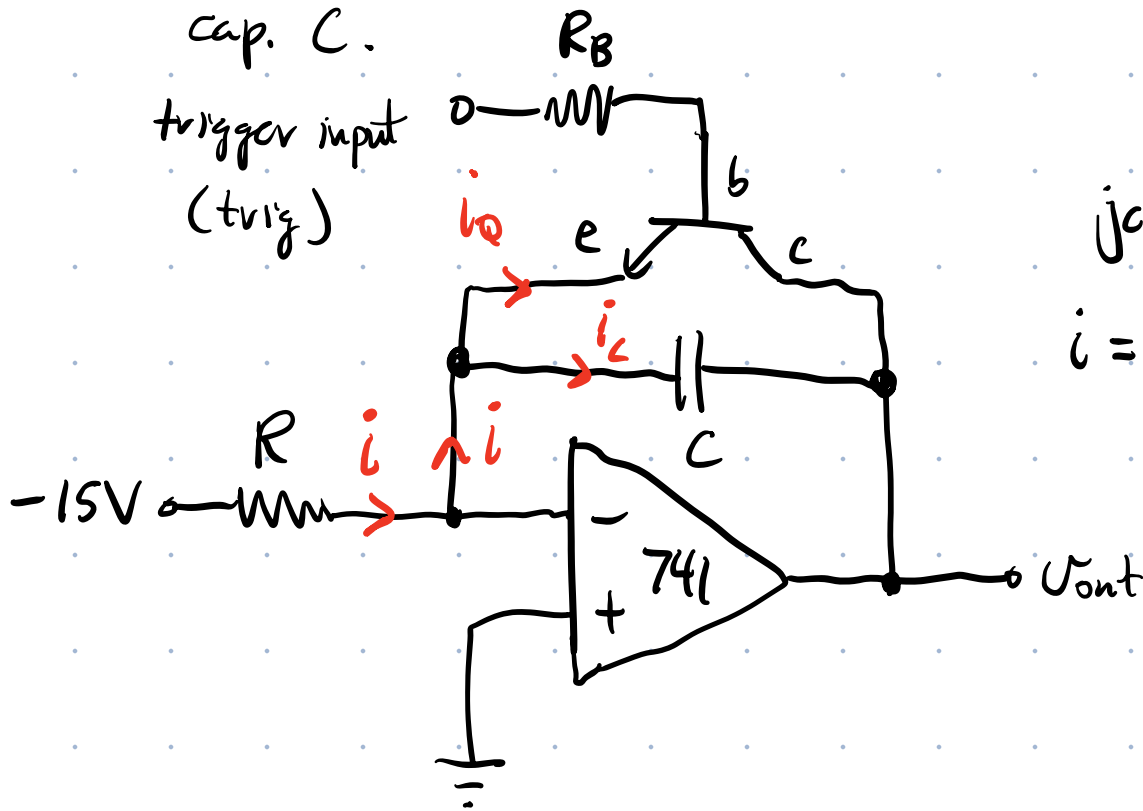 cap. C.
R_B
trigger input
(trig)
b
i_Q
e
c
jc
i_c
i =
C
R
i
i
-15V
−
741
+
v_out